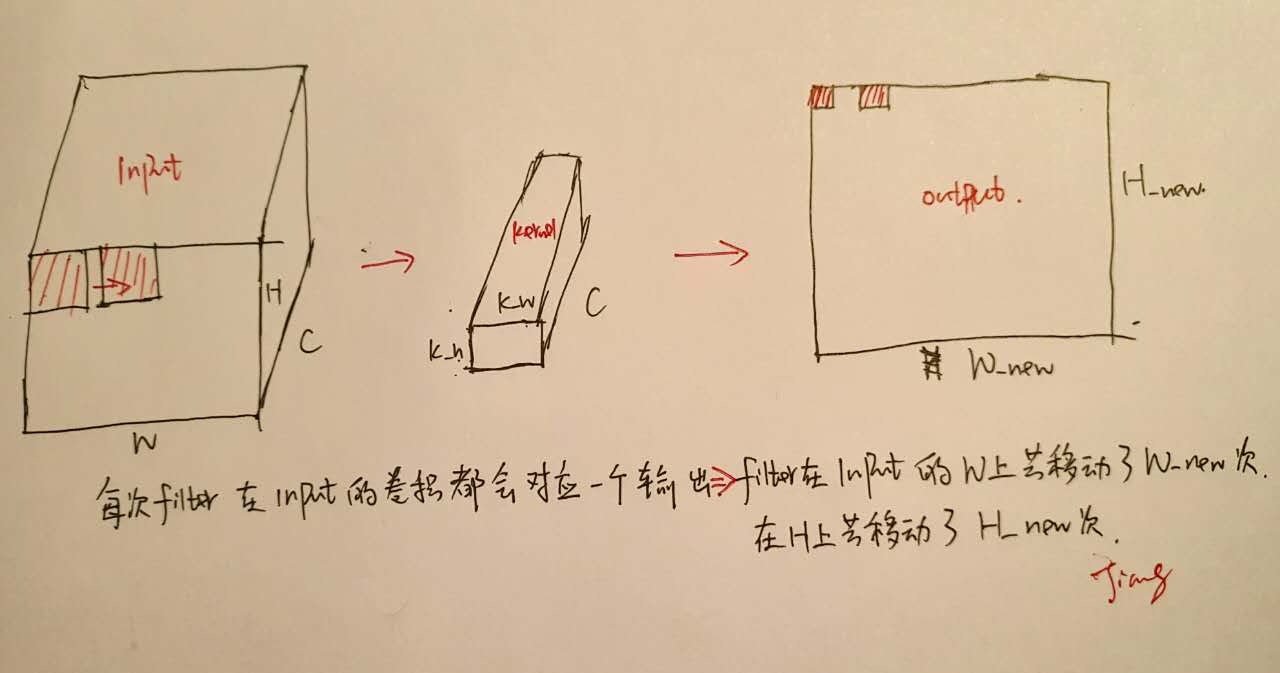 Input
H
C
W
kernel
K_W
K_h
C
output.
H_new.
W_new
每次filter在Input的卷积都会对应一个输出⇒filter在Input的W上共移动了W_new次.
在H上共移动了H_new次.
Jiang